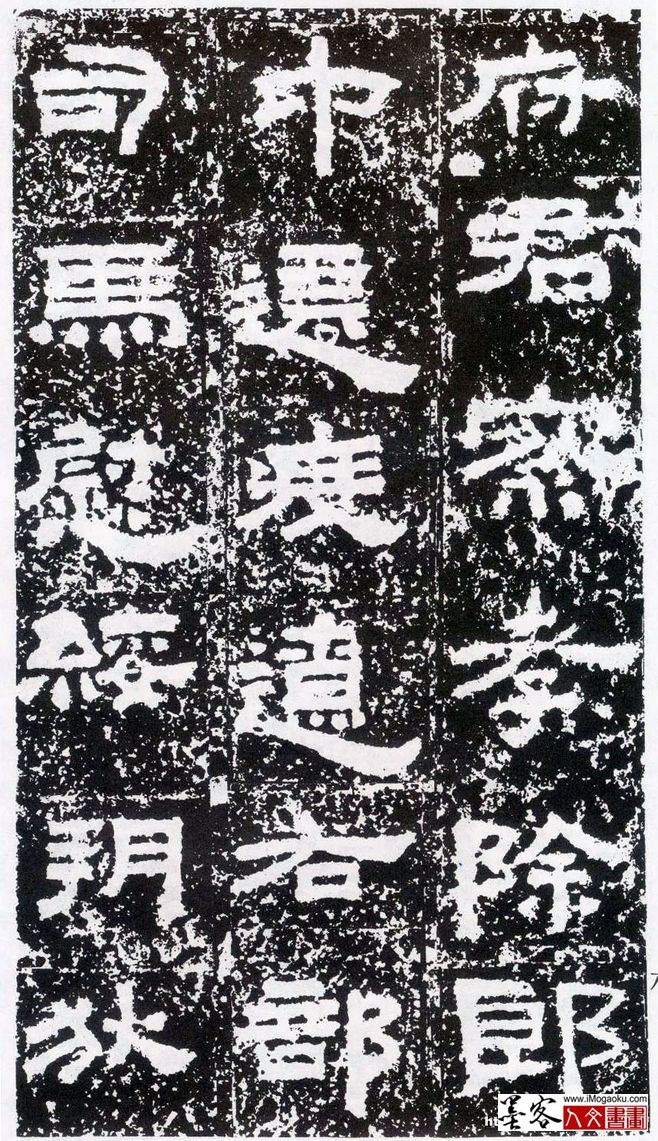 府君察孝除郎
中遷度遼右部
司馬慰綏朔狄
墨客
www.iMogaoku.com
人文書畫